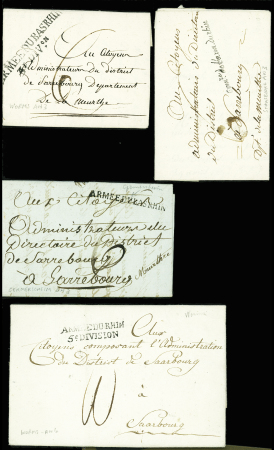 ARMÉE DU BAS RHIN
Au Citoyen
administrateurs du district
de Sarrebourg Département
de la Meurthe
6
Aux Citoyens
administrateurs du Directoire
du District
a Sarrebourg
Dpt. de la Meurthe
ARMÉE DU RHIN
Aux Citoyens
Administrateurs du
Directoire du District
de Sarrebourg
a Sarrebourg
Meurthe
8
ARMÉE DU RHIN
5e DIVISION
Aux
Citoyens composant l'Administration
du District de Saarbourg
à
Saarbourg